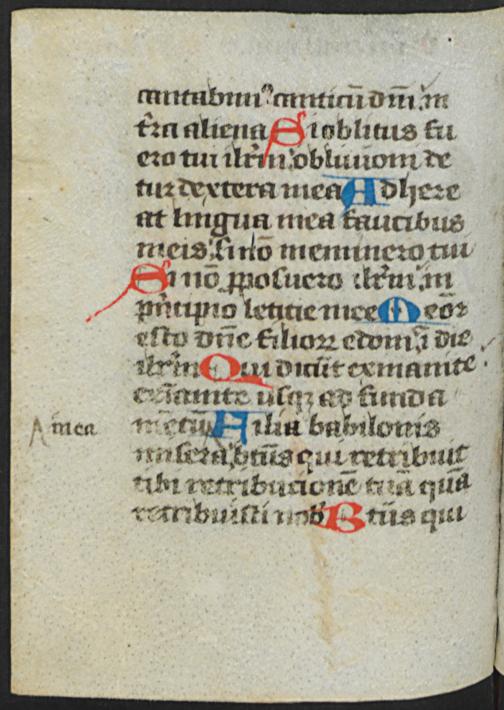 cantabim⁹ canticū dn̄i in
t̄ra aliena Si oblitus fu
ero tui ilr̄m obliuioni de
tur dextera mea Adhere
at lingua mea faucibus
meis si nō meminero tui
Si nō ꝓposuero ilr̄m in
pͥncipio leticie mee Meōr
esto dn̄e filioꝝ edom ī die
ilr̄m Qui dicūt exinanite
exīanite usqꝫ ad funda
mētū Filia babilonis
misera btūs qui retribuit
tibi retribucionē tuā quā
retribuisti nob Btūs qui
mea